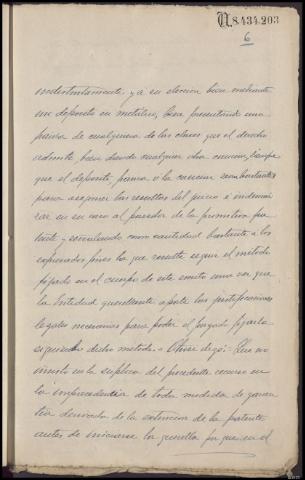 N.8.434.203
6
indistintamente y a su eleccion bien mediante
un deposito en metálico, bien prestando una
fianza de cualquiera de las clases que el derecho
admite bien dando cualquier otra caucion, siempre
que el deposito, fianza o la caucion sean bastantes
para asegurar las resultas del juicio e indemni
zar en su caso al poseedor de la primitiva pa
tente y señalando como cantidad bastante a los
expresados fines la que resulte segun el método
fijado en el cuerpo de este escrito una vez que
la Entidad querellante aporte las justificaciones
legales necesarias para poder el Juzgado fijarla
siguiendo dicho metodo. = Otrosi digo: Que no
insisto en la suplica del precedente recurso en
la improcedencia de toda medida de garan
tia derivada de la obtencion de la patente
antes de iniciarse la querella por que en el